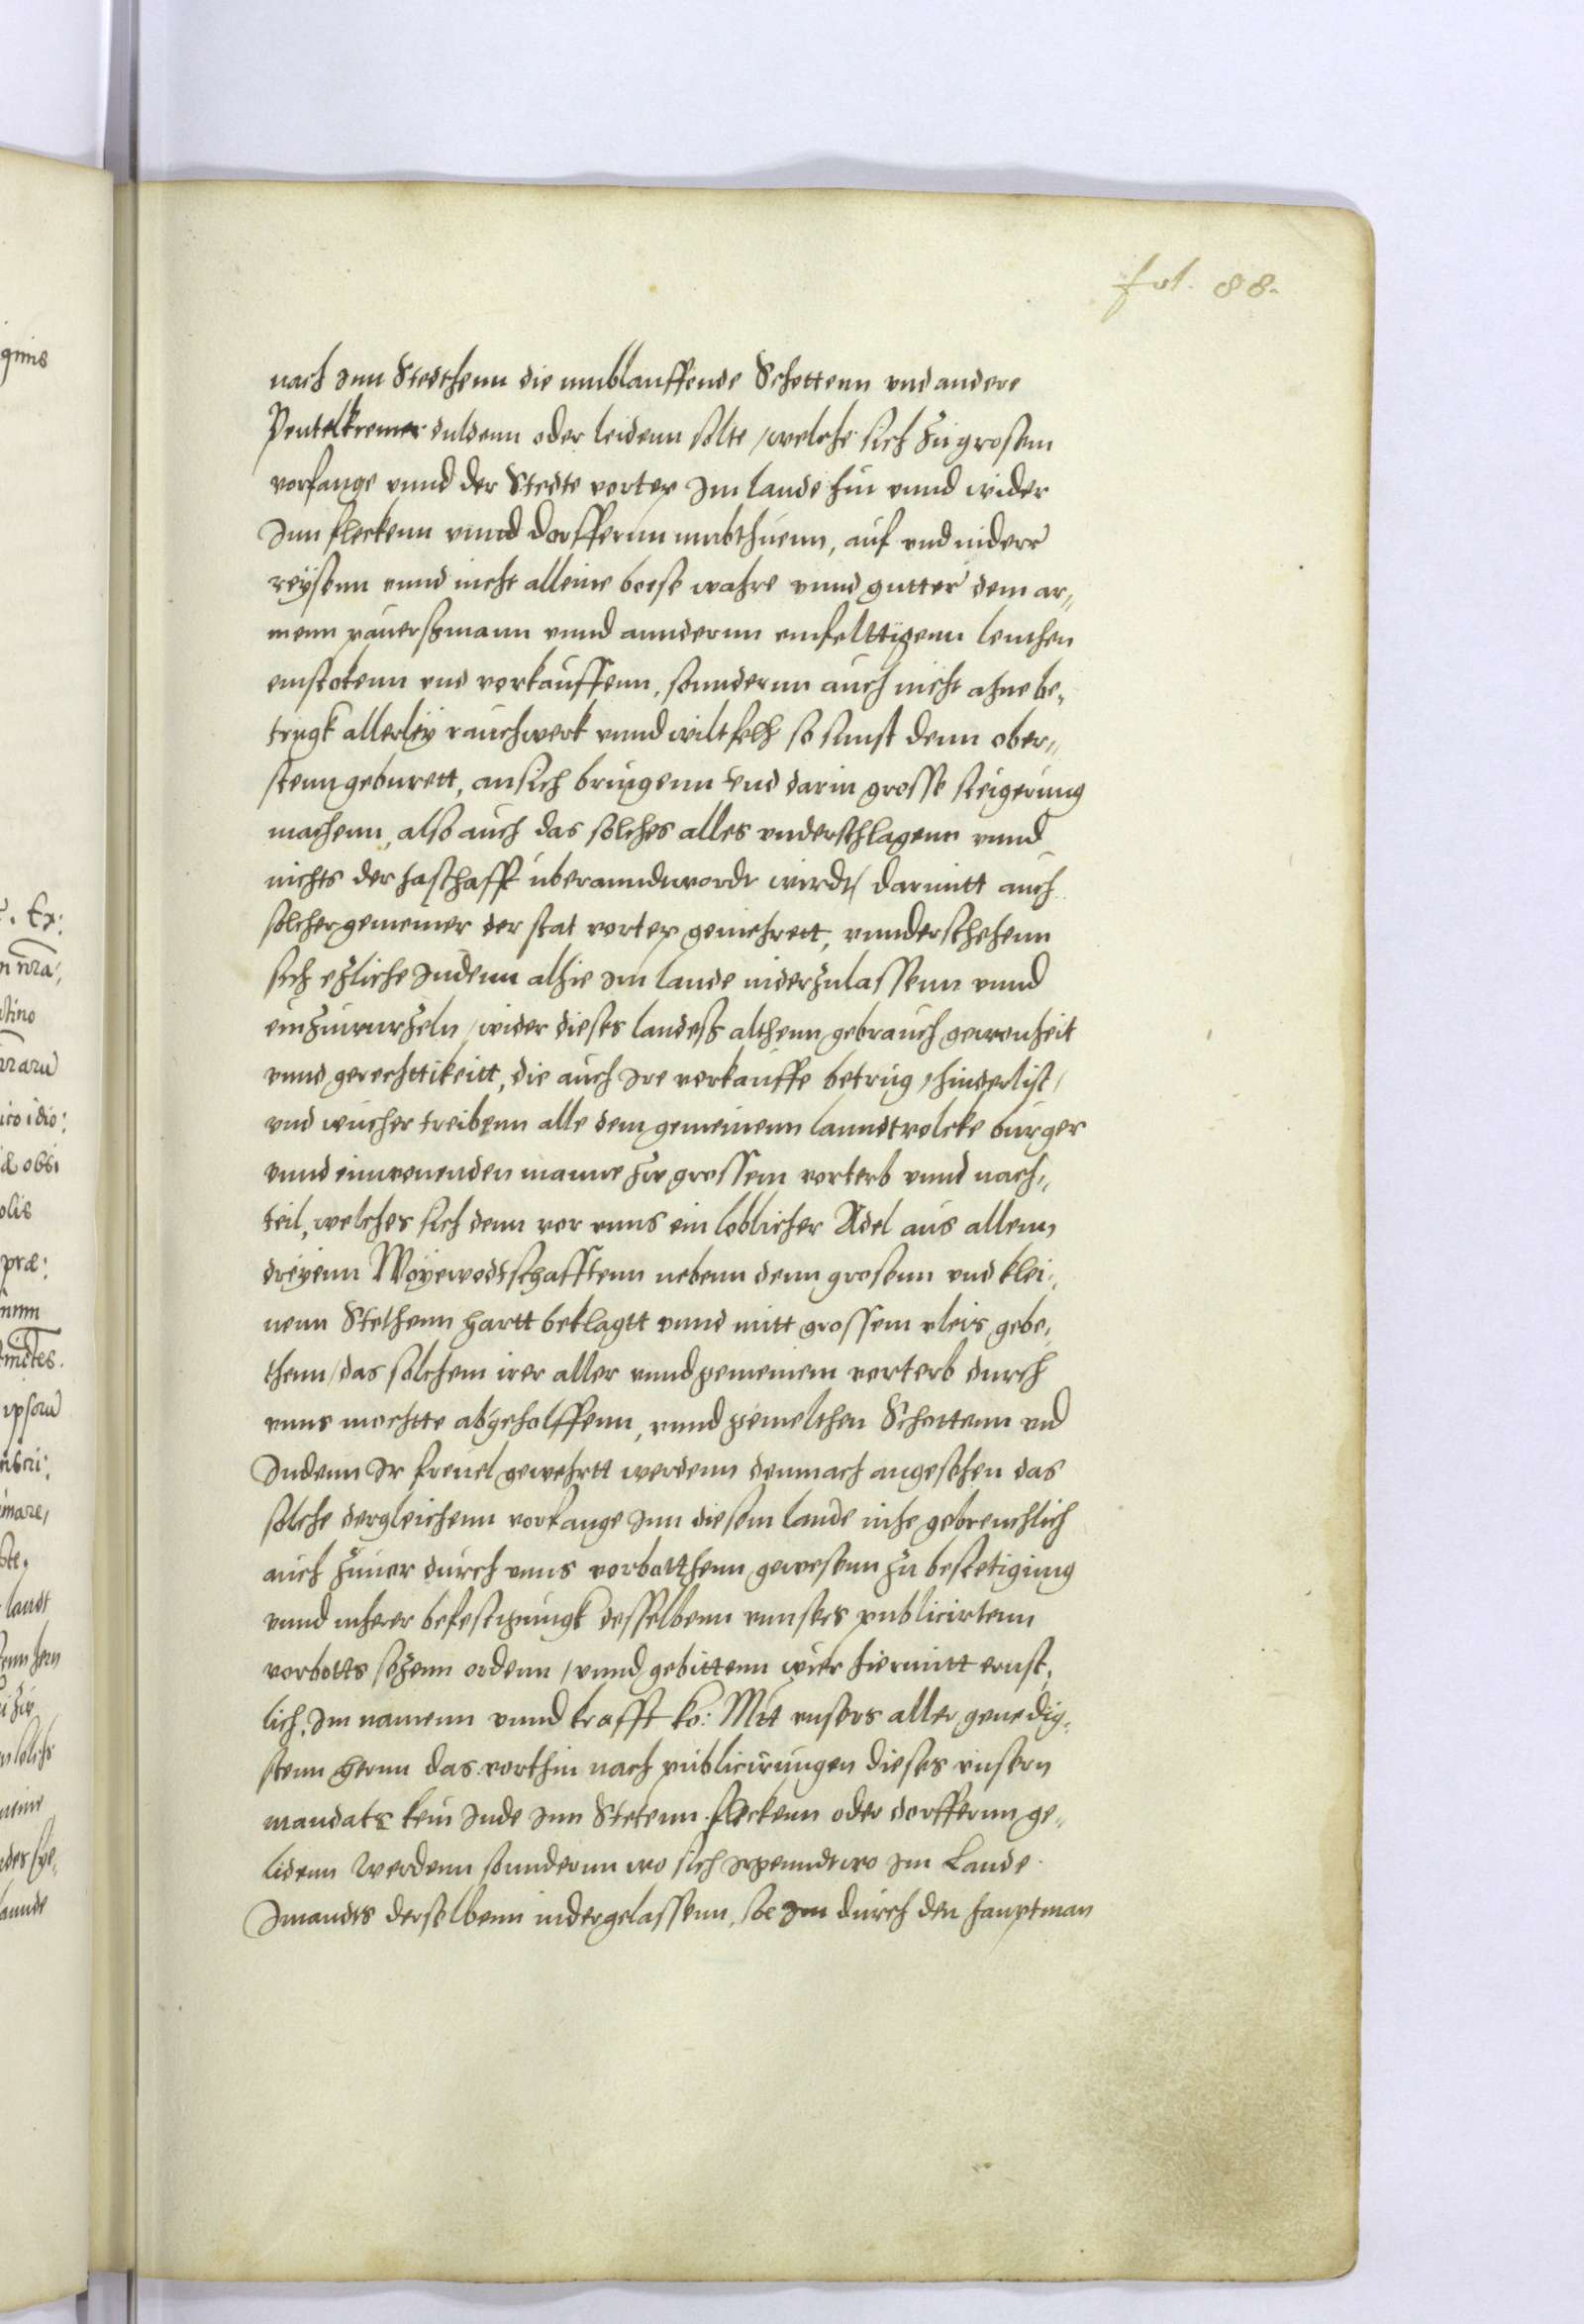 fol. 88.
nach Inn Stedthenn die umblauffende Schottenn vnd andere
Peutelkremer duldenn oder leidenn solte / welche sich zu grosem
vorfange vnnd der Stedte vorterp Im lande hin vnnd wider
Inn fleckenn vnnd dorffernn umbthuenn, auf vnd nider
reysenn vnnd nicht alleine boese wahre vnnd gutter dem ar„
menn paüerßmann vnnd annderenn einfelttigenn leuthen
einstotenn vnd verkauffenn, sonndernn auch nicht ahne be„
trugk allerley rauchwerk vnnd wiltfelh so sunst denn ober„
stenn geburett, an sich bringenn vnd darin grosse steigerung
machenn, also auch das solches alles vnderschlagenn vnnd
nichts der haschafft uberanndtwordt wirdt / darmitt auch
solcher gemeiner der stat vorterp gemehrett, vnnderstehenn
sich etzliche Judenn alhie Im lande niderzulassenn vnnd
einzuwurzeln / wider dieses landeß althenn gebrauch gewonheit
vnnd gerechttikeitt, die auch Ire verkauffe betrug / hinderlist /
vnd wucher treibenn alle dem gemeinenn lanndtvolcke burger
vnnd einwonenden manne zu grossem vorterb vnnd nach„
teil, welches sich denn vor vnns ein loblicher Adel aus allenn
dreyenn Woyewodtschafftenn nebenn denn grosenn vnd klei„
nenn Stethenn hartt beklagtt vnnd mitt grossem vleis gebe„
thenn / das solchem irer aller vnnd gemeinem vorterb durch
vnns mochtte abgeholffenn, vnnd gemelthen Schottenn vnd
Judenn Ir freuel gewehrtt werdenn demnach angesehen das
solche dergleichenn vorfange Inn diesem lande nihe gebreuchlich
auch zuuor durch vnns vorbotthenn gewesenn zu bestetigung
vnnd mherer befestigungk desselbenn vnnsers publicirtenn
vorbotts sezenn ordenn / vnnd gebittenn wier hiermitt ernst„
lich, Im namenn vnnd krafft ko: Mtt vnsers aller genedig„
stenn hernn das vorthin nach publicirungen dieses vnsern
mandats kein Jude Inn Stetenn fleckenn oder dorffernn ge„
lidenn werdenn sonndernn wo sich irgenndtwo Im Lande
Imandts derselbenn nidergelassenn, soe Im durch den hauptman